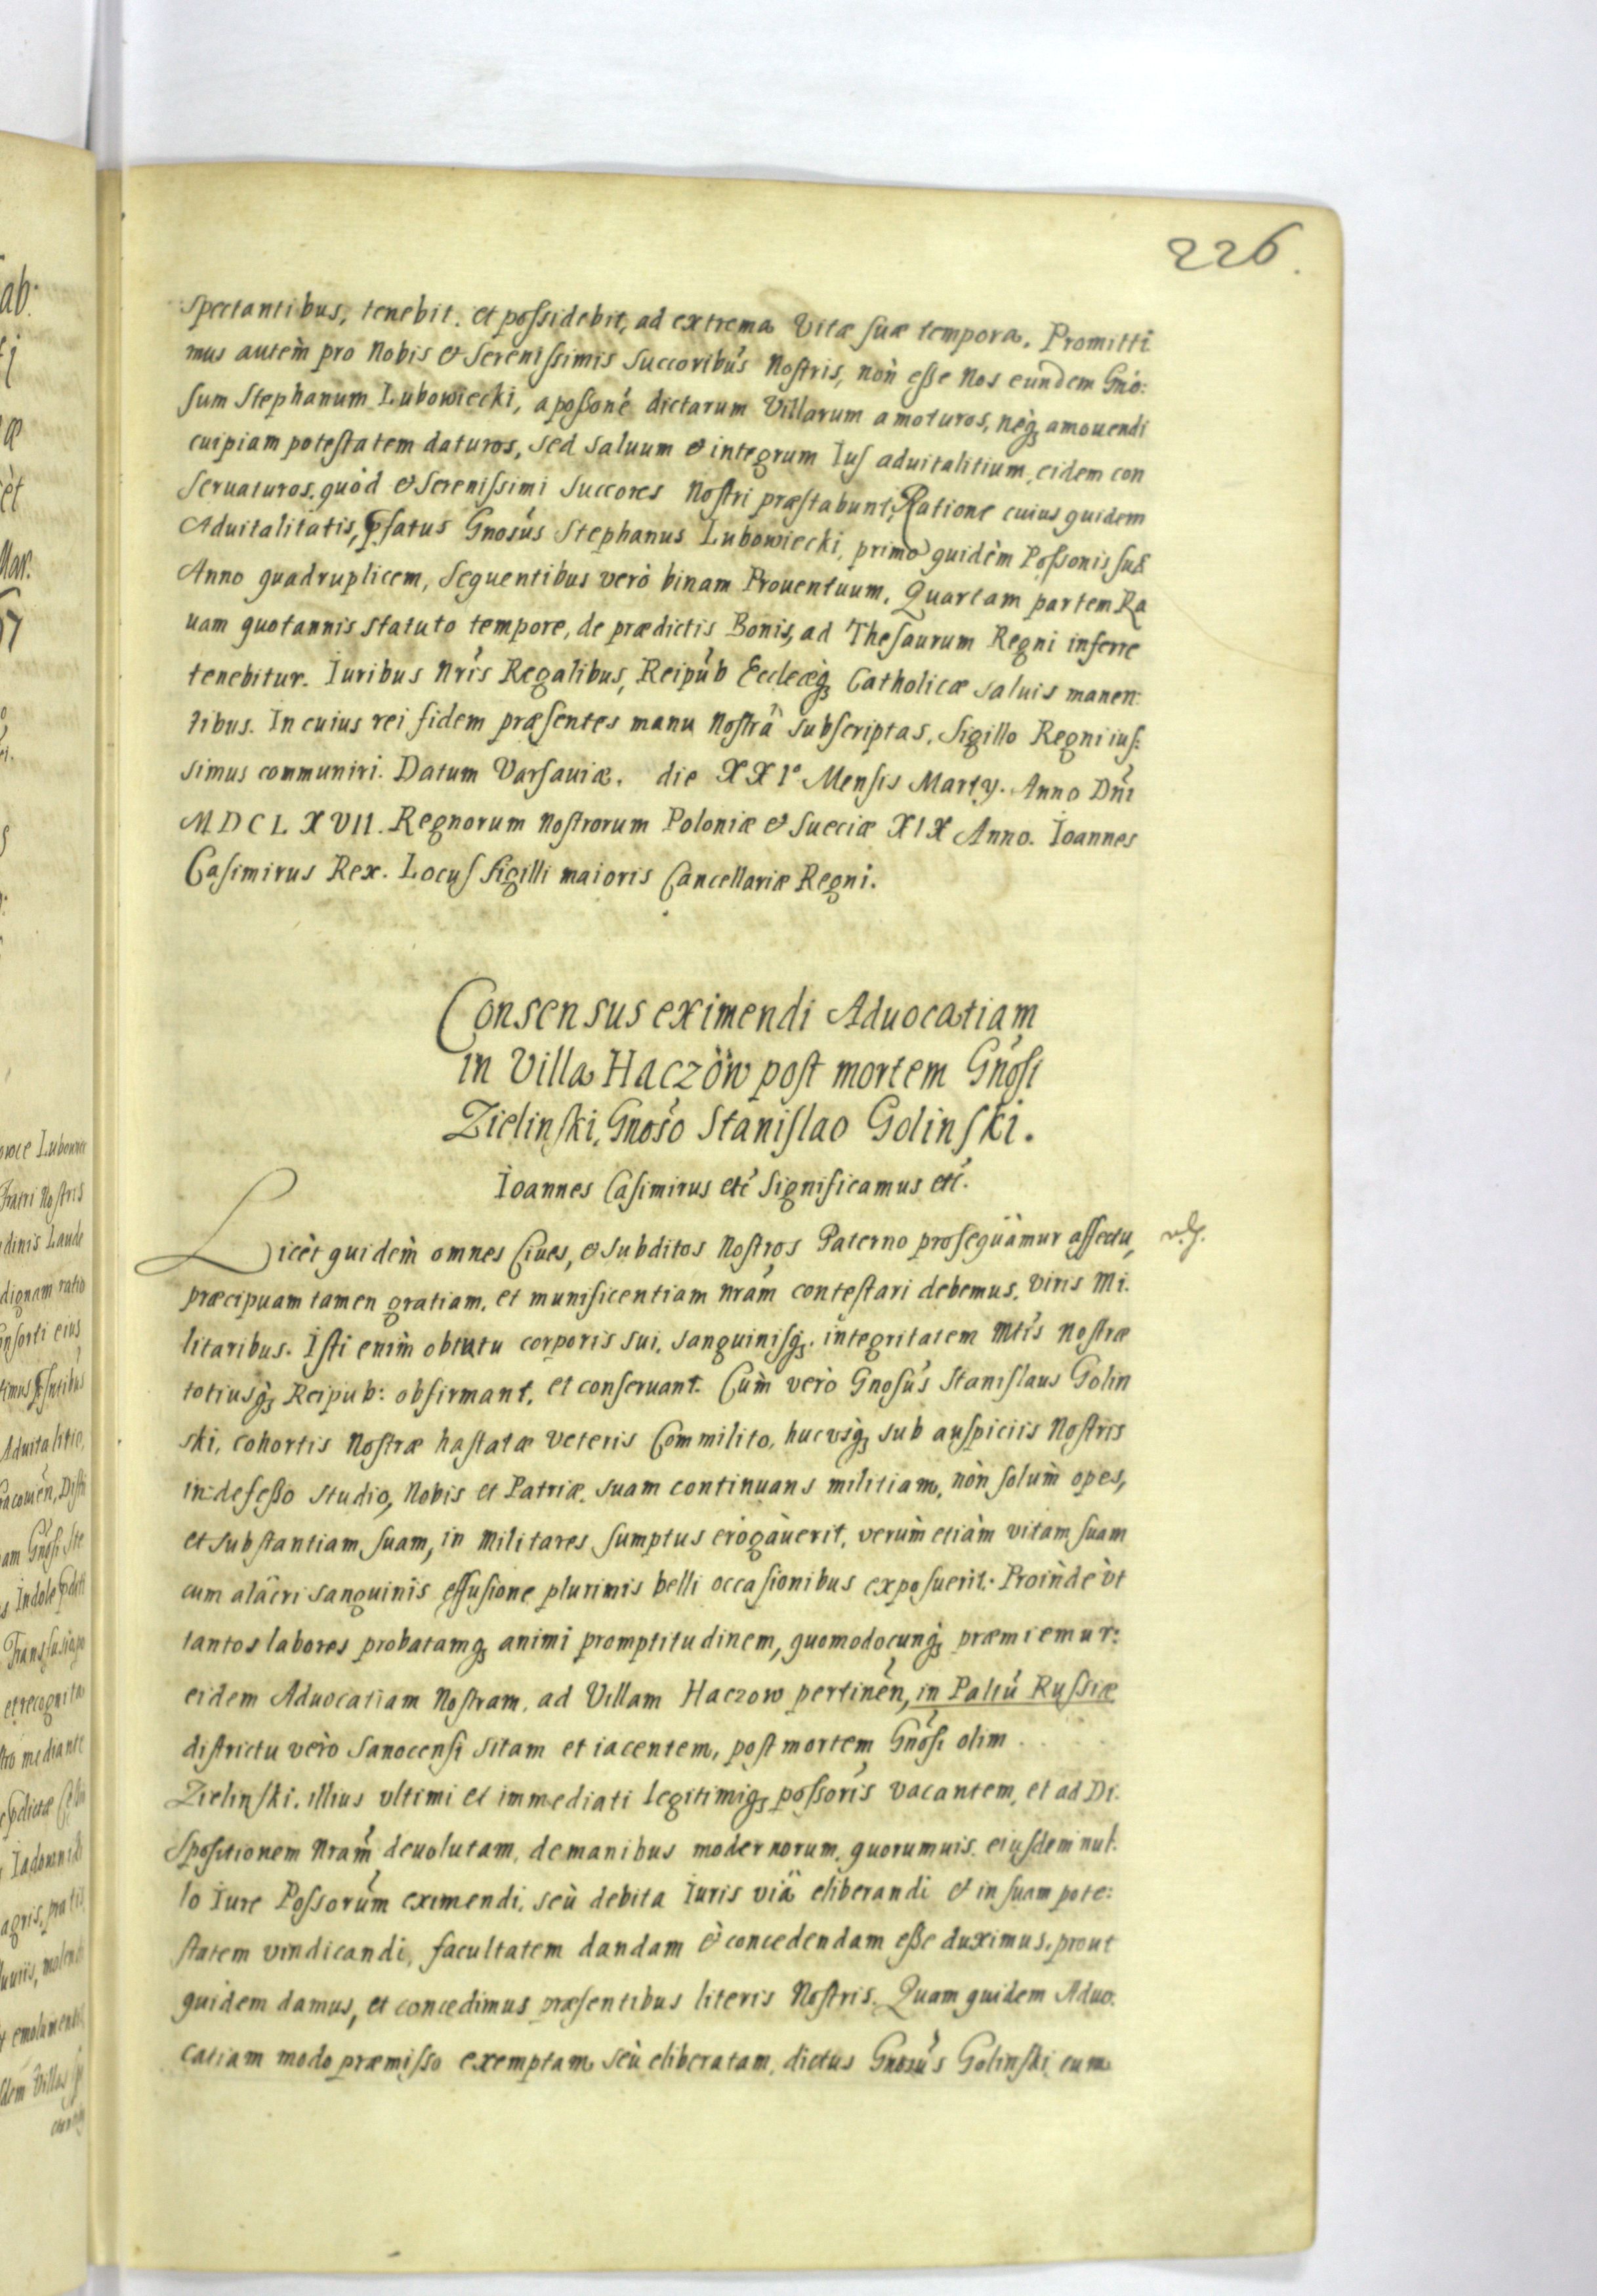 226.
spectantibus, tenebit. et possidebit, ad extrema Vitæ suæ tempora. Promitti
mus autem pro Nobis & Serenissimis Succoribus Nostris, non esse Nos eundem Gno:
sum Stephanum Lubowiecki, a possone dictarum Villarum amoturos, neq amouendi
cuipiam potestatem daturos, sed saluum & integrum Ius aduitalitium eidem con
seruaturos. quòd & Serenissimi Succores Nostri præstabunt, Ratione cuius quidem
Aduitalitatis, psatus Gnosus Stephanus Lubowiecki, primo quidèm Possonis suæ
Anno quadruplicem, sequentibus verò binam Prouentuum, Quartam partem Ra
uam quotannis statuto tempore, de prædictis Bonis, ad Thesaurum Regni inferre
tenebitur. Iuribus Nris Regalibus, Reipub Eccleæq Catholicæ saluis manen:
tibus. In cuius rei fidem præsentes manu Nostrâ subscriptas, Sigillo Regni ius:
simus communiri. Datum Varsauiæ. die XXIº Mensis Marty. Anno Dni
MDCLXVII. Regnorum Nostrorum Poloniæ & Sueciæ XIX Anno. Ioannes
Casimirus Rex. Locus Sigilli maioris Cancellariæ Regni.
Consensus eximendi Aduocatiam
in Villa Haczöw post mortem Gnosi
Zielinski, Gnoso Stanislao Golinski.
Ioannes Casimirus etc Significamus etc.
Licèt quidem omnes Ciues, & subditos Nostros Paterno prosequàmur affectu,
præcipuam tamen gratiam, et munificentiam nram contestari debemus, Viris Mi.
litaribus. Isti enim obtutu corporis sui, sanguinisq, integritatem Mtis Nostræ
totiusq Reipub: obfirmant, et conseruant. Cùm verò Gnosus Stanislaus Golin
ski, cohortis Nostræ hastatæ Veteris Commilito, hucusq sub auspiciis Nostris
indefesso studio, Nobis et Patriæ suam continuans militiam, non solùm opes,
et substantiam suam, in Militares sumptus erogàuerit, verùm etiàm vitam suam
cum alacri sanguinis effusione plurimis belli occasionibus exposuerit. Proinde vt
tantos labores probatamq animi promptitudinem, quomodocunq præmiemur:
eidem Aduocatiam Nostram, ad Villam Haczow pertinen, in Paltu Russiæ
districtu verò Sanocensi Sitam et iacentem, post mortem Gnosi olim . . . .
Zielinski, illius vltimi et immediati legitimiq possoris vacantem, et ad Di.
spositionem Nram deuolutam, de manibus modernorum, quorumuis eiusdem nul.
lo Iure Possorum eximendi, seù debita Iuris viâ eliberandi & in suam pote:
statem vindicandi, facultatem dandam & concedendam esse duximus, prout
quidem damus, et concedimus præsentibus literis Nostris. Quam quidem Aduo.
catiam modo præmisso exemptam seù eliberatam, dictus Gnosus Golinski cum